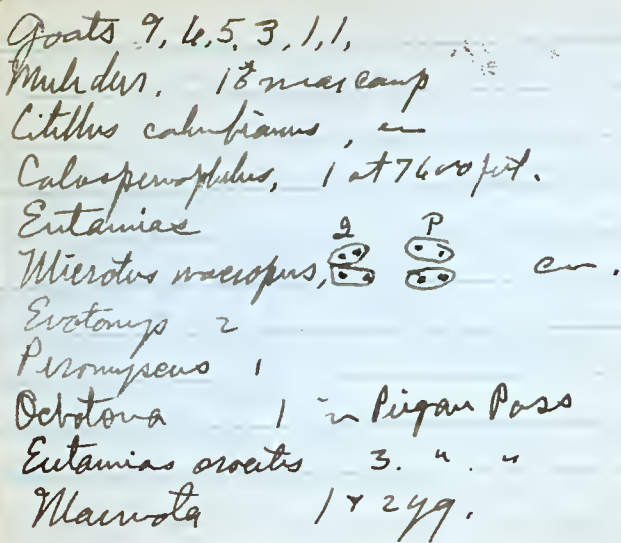 Goats 9, 6, 5, 3, 1, 1,
Mule deer, 1 ♂ near camp
Citellus columbianus, cm
Calospermophilus, 1 at 7600 feet.
Eutamias
Microtus macropus, cm.
Evotomys 2
Peromyscus 1
Ochotona 1 in Piegan Pass
Eutamias oreocetes 3. " . "
Marmota 1 & 2 yg.